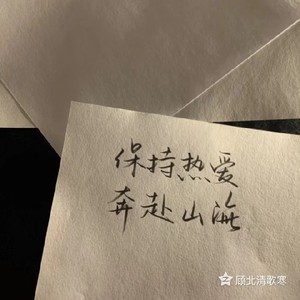 保持热爱
奔赴山海
顾北清歌寒